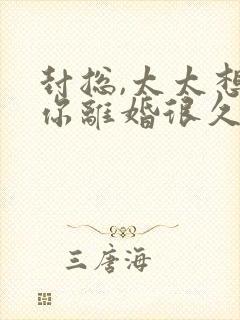 封总,太太想
你離婚很久
三唐海